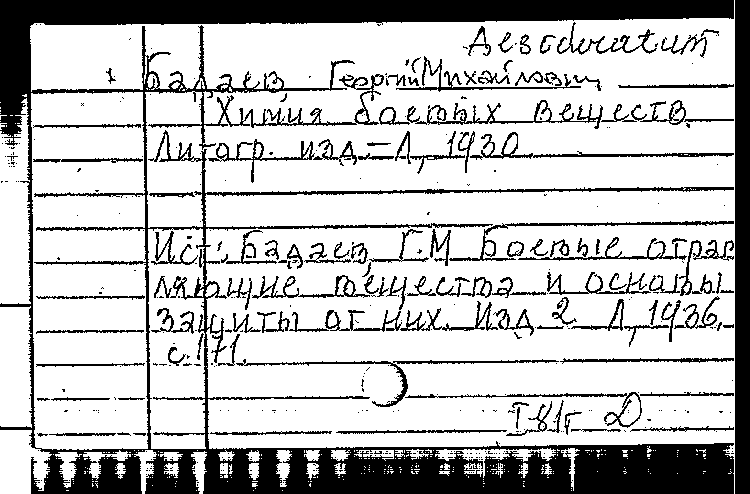 Desideratum
Бадаев, Георгий Михайлович
Химия боевых веществ.
Литогр. изд. – Л, 1930.
Ист: Бадаев, Г.М Боевые отрав
ляющие вещества и основы
защиты от них. Изд. 2 Л, 1936,
с. 171.
I 81г D.